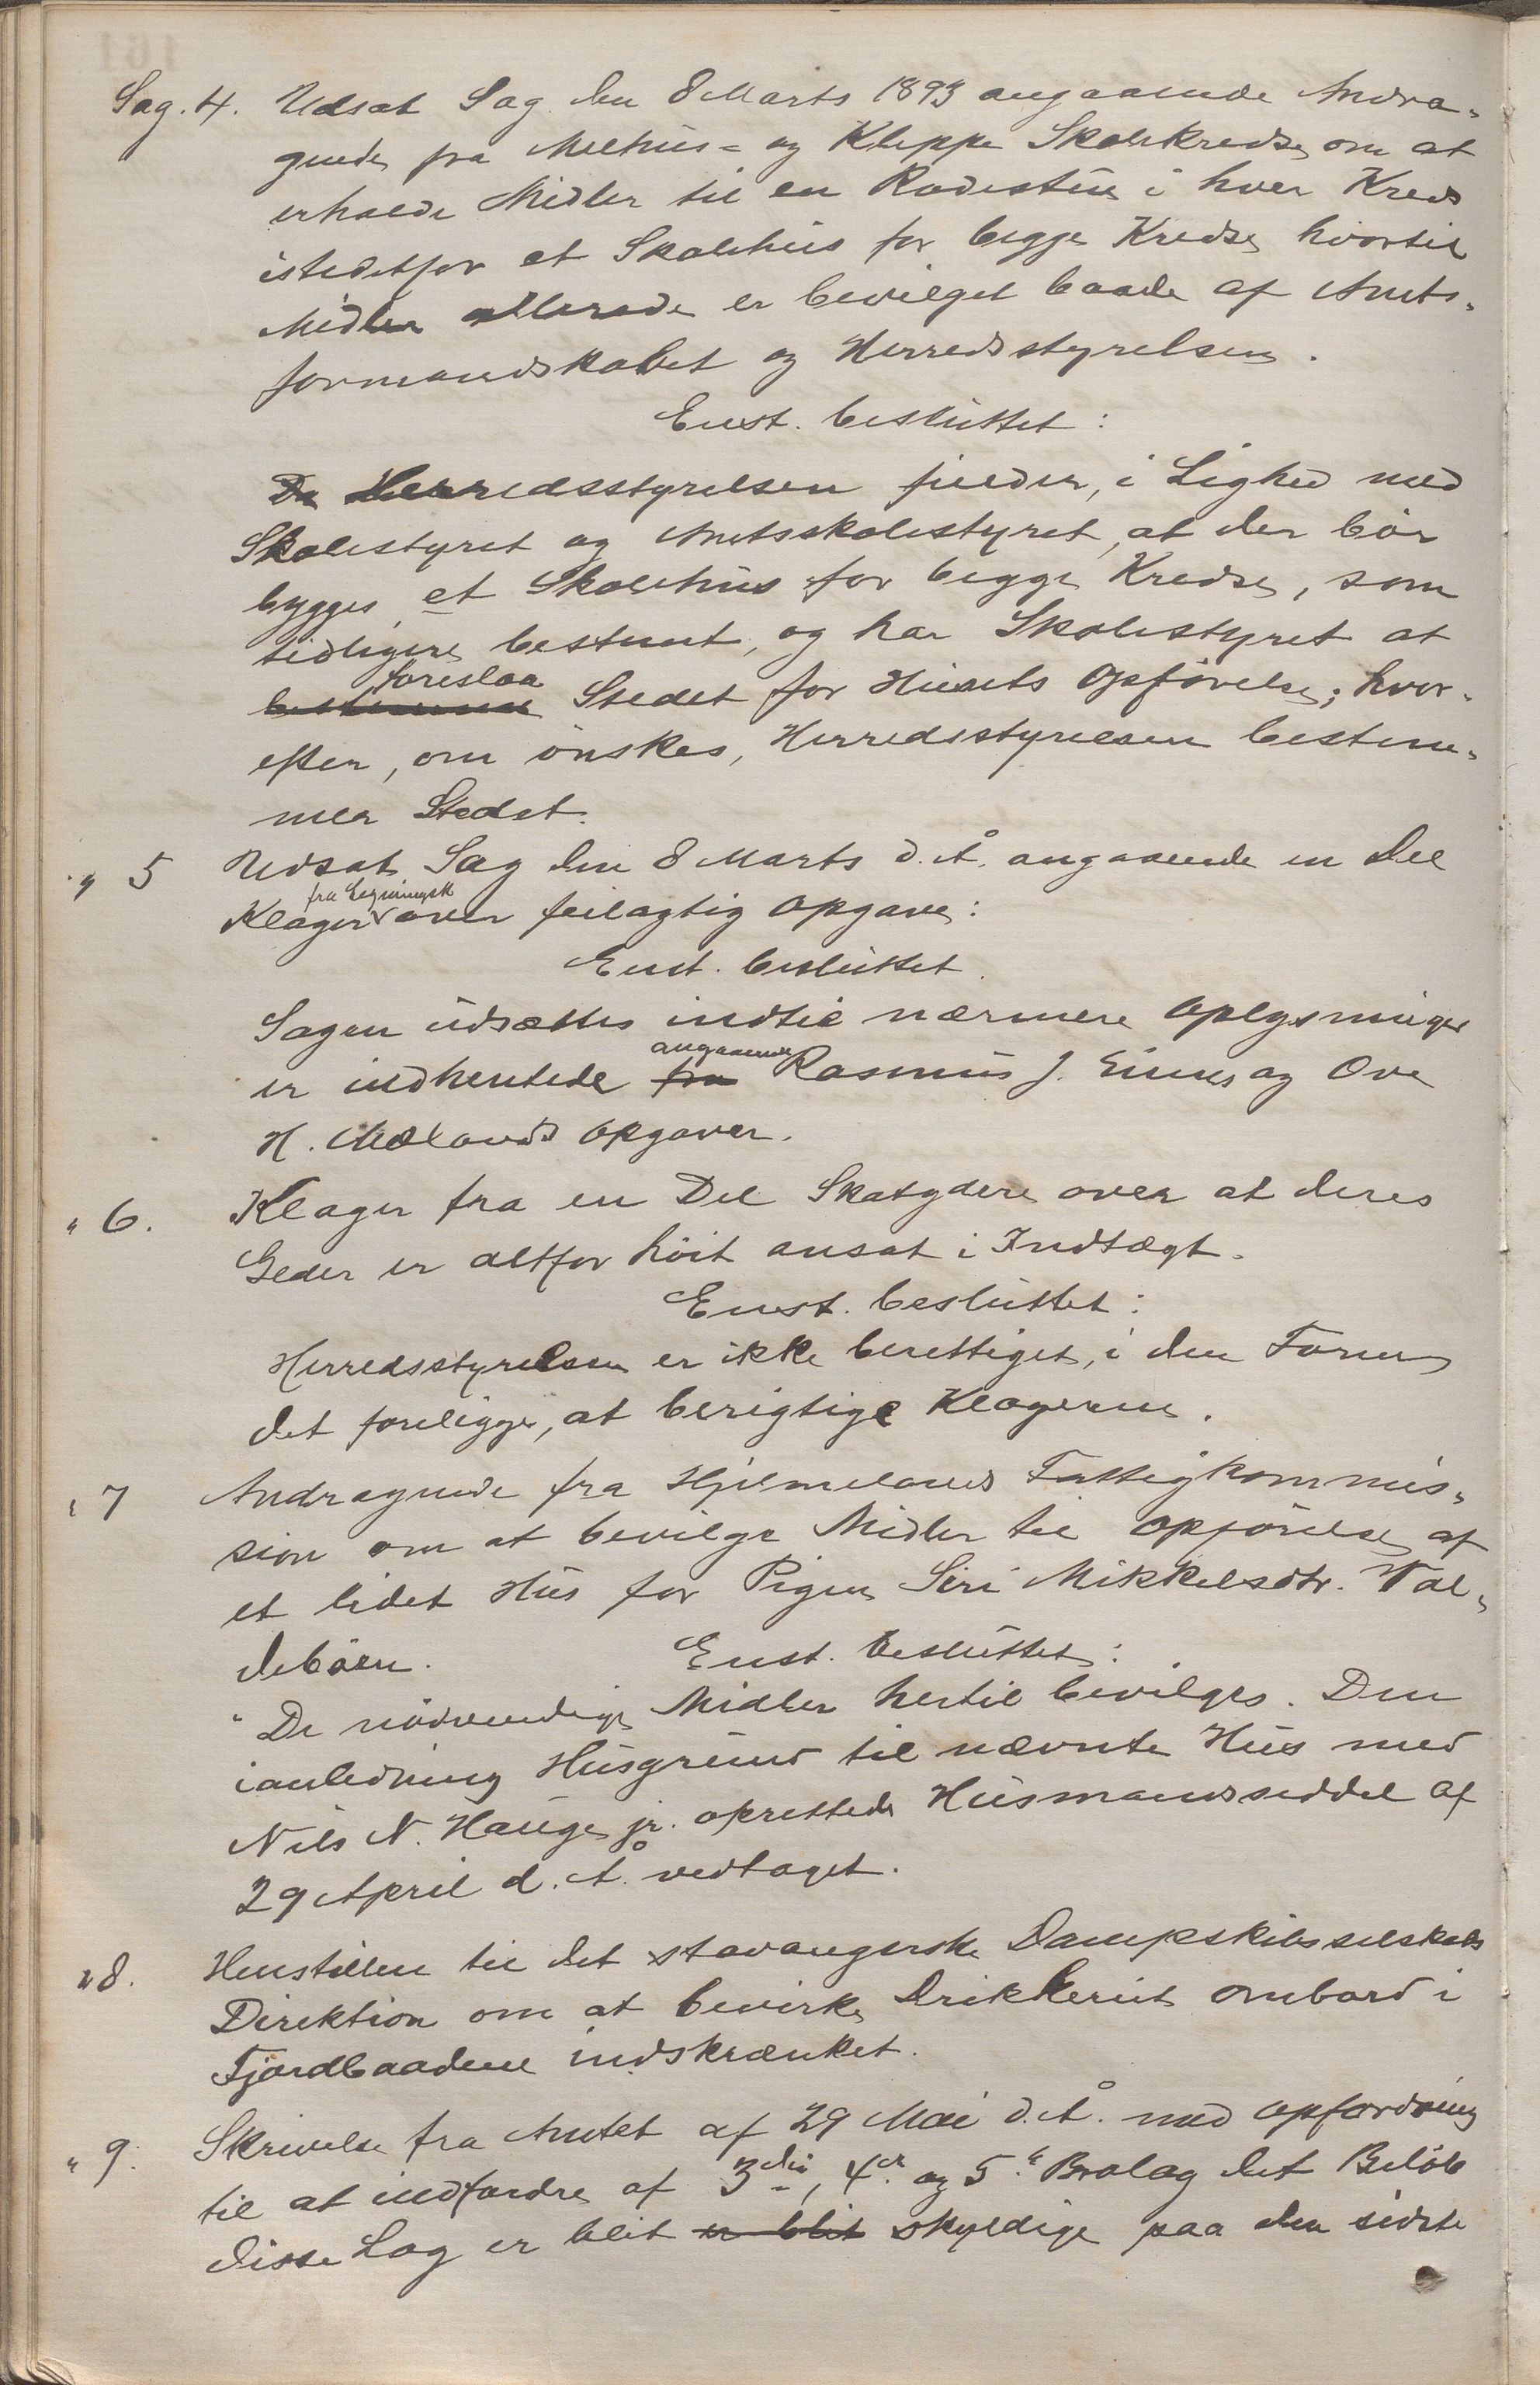 Sag. 4. Udsat Sag den 8 Marts 1893 angaaende Andra-
gende fra Mælhus- og Kleppe Skolekredse om at
erholde Midler til en Rodestue i hver Kreds
istedetfor et Skolehus for begge Kredse hvortil
Midler allerede er bevilget baade af Amts-
formandskabet og Herredsstyrelsen.
Enst. besluttet:
De Herredsstyrelsen finder, i Lighed med
Skolestyret og Amtsskolestyret, at der bör
bygges et Skolehus for begge Kredse, som
tidligere bestemt, og har Skolestyret at
foreslaa
bestemme Stedet for Husets Opförelse; hvor-
efter, om önskes, Herredsstyrelsen bestem-
mer Stedet.
" 5 Udsat Sag den 8 Marts d. Å. angaaende en Del
fra Ligningsk
Klager over feilagtig Opgave:
Enst. besluttet.
Sagen udsættes indtil nærmere Oplysninger
angaaende
er indhentede fra Rasmus J. Eines og Ove
H. Mælands Opgaver.
" 6. Klager fra en Del Skatydere over at deres
Geder er altfor höit ansat i Indtægt.
Enst. besluttet:
Herredsstyrelsen er ikke berettiget, i den Form
det foreligger, at berigtige Klagerne.
" 7 Andragende fra Hjelmelands Fattigkommis-
sion om at bevilge Midler til Opförelse af
et lidet Hus for Pigen Siri Mikkelsdtr. Val-
deböen. Enst. besluttet:
"De nödvendige Midler hertil bevilges. Den
ianledning Husgrund til nævnte Hus med
Nils N. Hauge jr. oprettede Husmandsseddel af
29 April d. Å. vedtaget.
" 8. Henstillen til det stavangerske Dampskibsselskabs
Direktion om at bevirke Drikkeriet ombord i
Fjordbaadene indskrænket.
" 9. Skrivelse fra Amtet af 29 Mai d. Å. med Opfordring
til at indfordre af 3die, 4de og 5te Brolag det Belöb
disse Lag er blit er blit skyldige paa den sidste